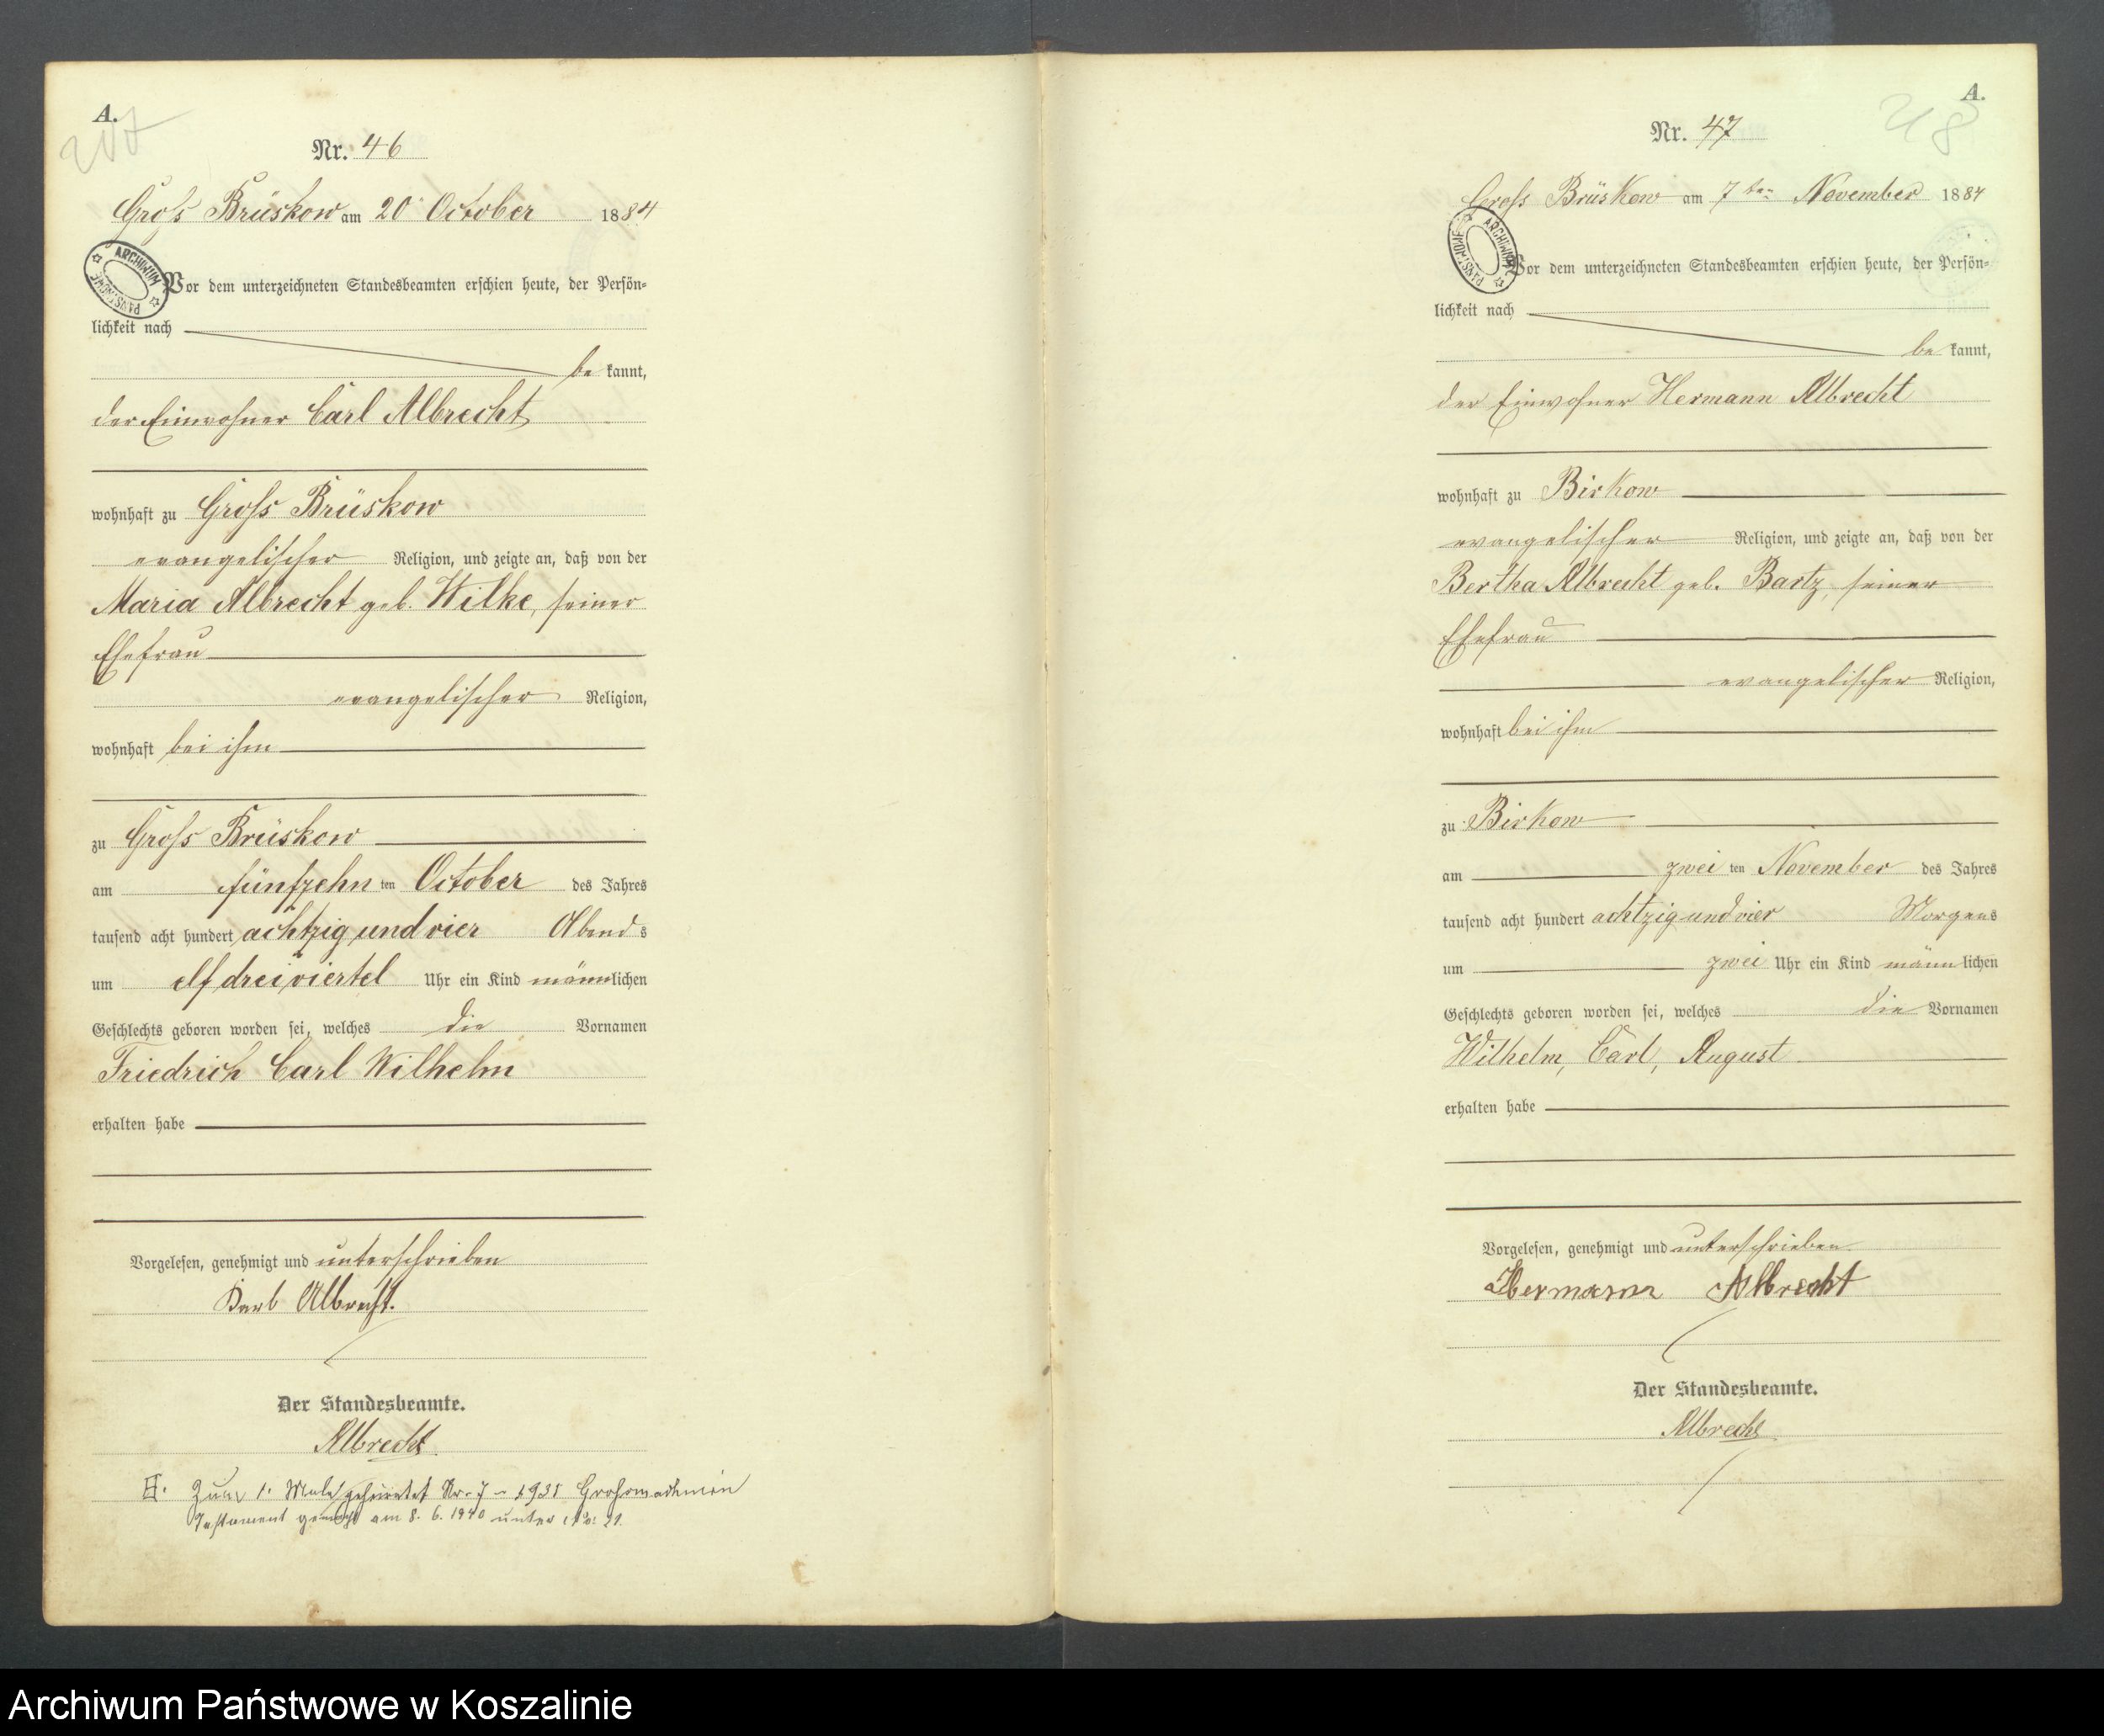 A.
207
Nr. 46
Groß Brüskow am 20 October 1884
ARCHIWUM PAŃSTWOWE
Vor dem unterzeichneten Standesbeamten erschien heute, der Persön-
lichkeit nach
be kannt,
der Einwohner Carl Albrecht
wohnhaft zu Groß Brüskow
evangelischer Religion, und zeigte an, daß von der
Maria Albrecht geb. Wilke, seiner
Ehefrau
evangelischer Religion,
wohnhaft bei ihm
zu Groß Brüskow
am fünfzehn ten October des Jahres
tausend acht hundert achtzig und vier Abend s
um elf dreiviertel Uhr ein Kind männlichen
Geschlechts geboren worden sei, welches die Vornamen
Friedrich Carl Wilhelm
erhalten habe
Vorgelesen, genehmigt und unterschrieben
Karl Albrecht.
Der Standesbeamte.
Albrecht.
Zum 1. Male geheiratet Nr. 7 - 1935
Testament gemacht am 8. 6. 1940 unter Nr. 21.
A.
Nr. 47
Groß Brüskow am 7ten November 1884
ARCHIWUM PAŃSTWOWE
Vor dem unterzeichneten Standesbeamten erschien heute, der Persön-
lichkeit nach
be kannt,
der Einwohner Hermann Albrecht
wohnhaft zu Birkow
evangelischer Religion, und zeigte an, daß von der
Bertha Albrecht geb. Bartz, seiner
Ehefrau
evangelischer Religion,
wohnhaft bei ihm
zu Birkow
am zwei ten November des Jahres
tausend acht hundert achtzig und vier Morgens
um zwei Uhr ein Kind männlichen
Geschlechts geboren worden sei, welches die Vornamen
Wilhelm, Carl, August
erhalten habe
Vorgelesen, genehmigt und unterschrieben.
Hermann Albrecht
Der Standesbeamte.
Albrecht.
Archiwum Państwowe w Koszalinie